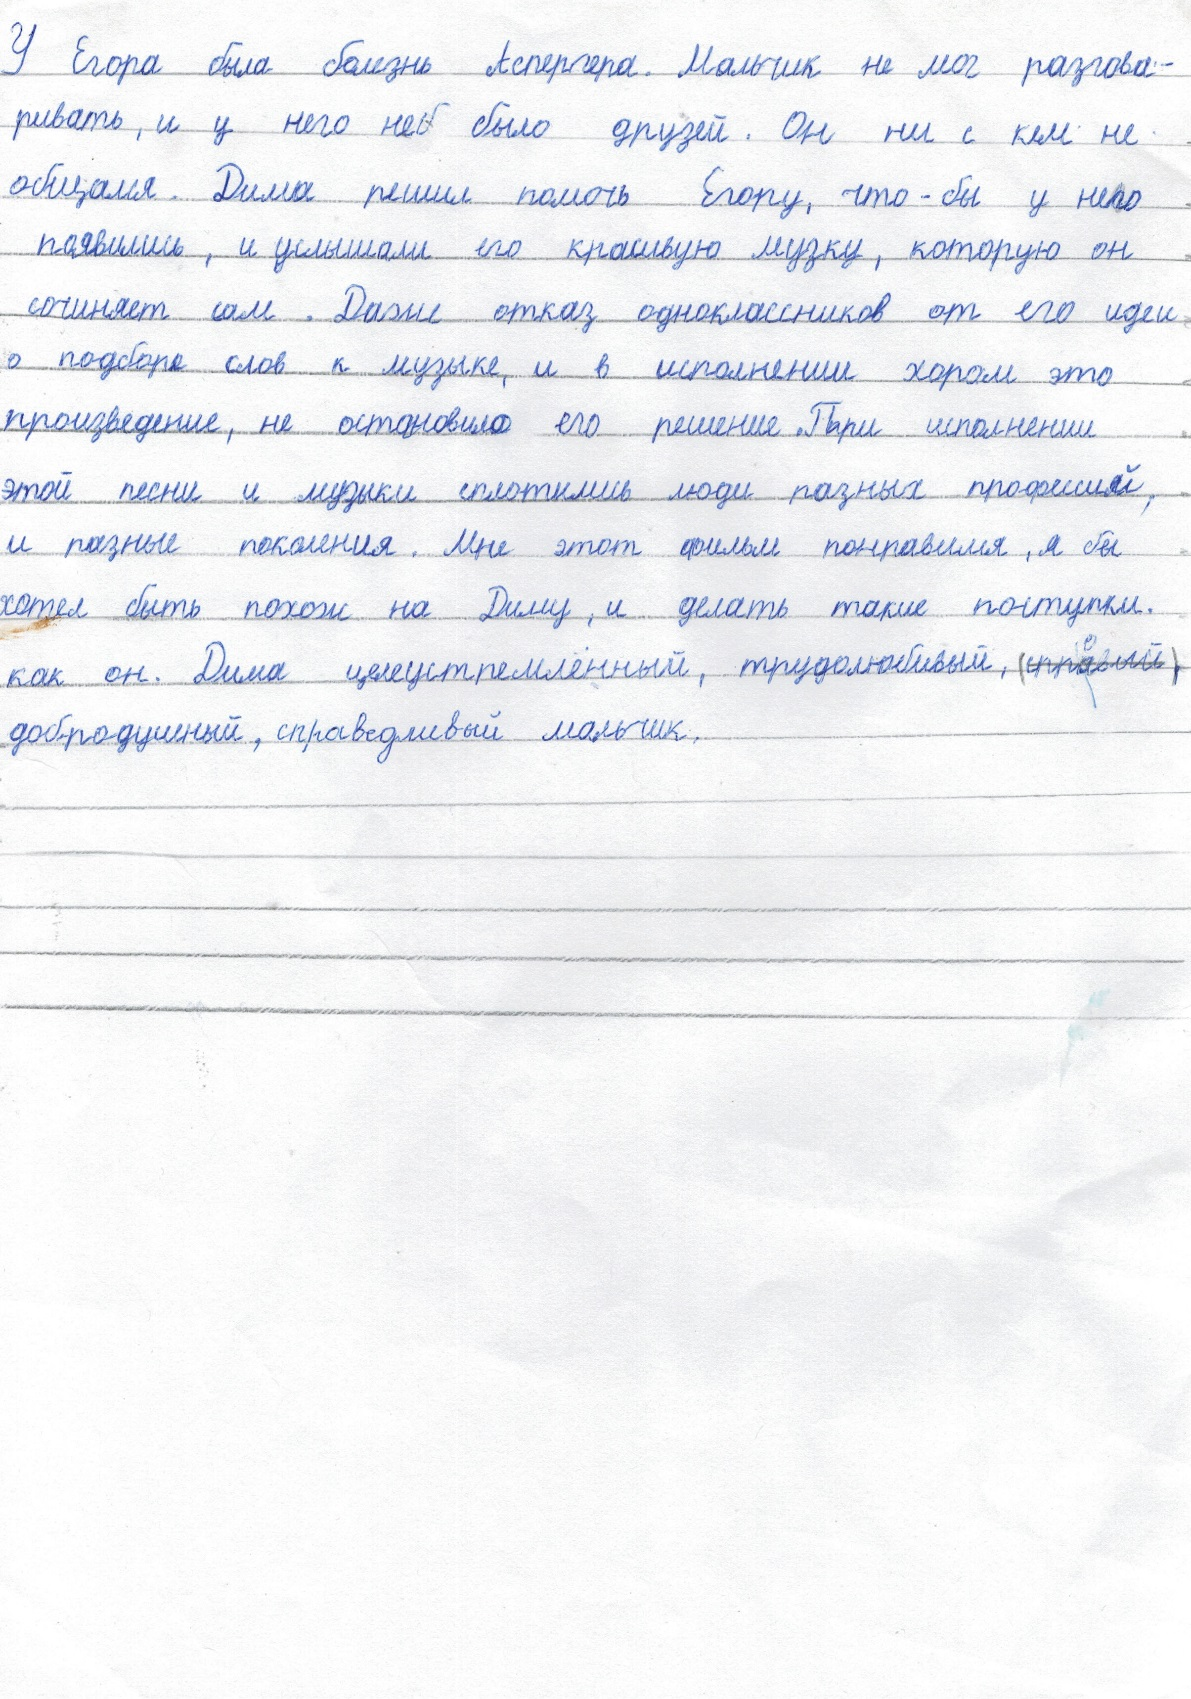 У Егора была болезнь Аспергера. Мальчик не мог разгова-
ривать, и у него не было друзей. Он ни с кем не
общался. Дима решил помочь Егору, что-бы у него
паявились, и услышали его красивую музку, которую он
сочиняет сам. Даже отказ одноклассников от его идеи
о подборе слов к музыке, и в исполнении хором это
произведение, не остановило его решение. При исполнении
этой песни и музыки сплотились люди разных професий,
и разные поколения. Мне этот фильм понравился, я бы
хотел быть похож на Диму, и делать такие поступки.
как он. Дима целеустремлённый, трудолюбивый,
добродушный, справедливый мальчик.